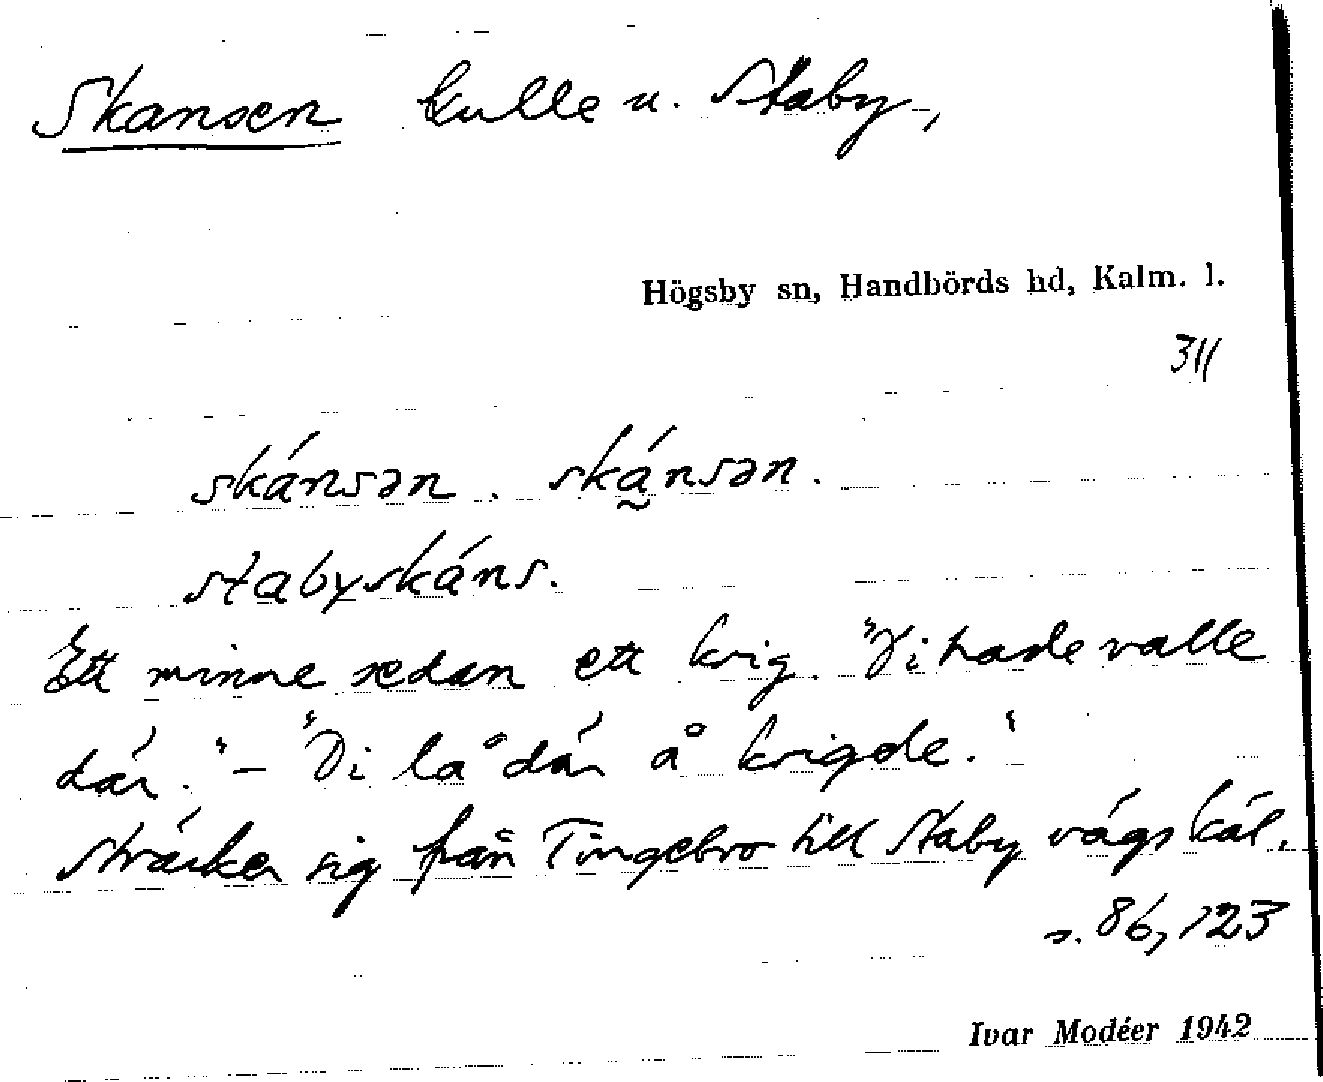 Skansen Kulle u. Staby,
Högsby sn, Handbörds hd, Kalm. l.
311
skánsən. ská̰nsən.
stabyskáns.
Ett minne sedan ett krig. "Di hade valle
där." – "Di lå där å krigde."
sträcker sig från Tingebro till Staby vägskäl.
s. 86, 123
Ivar Modéer 1942